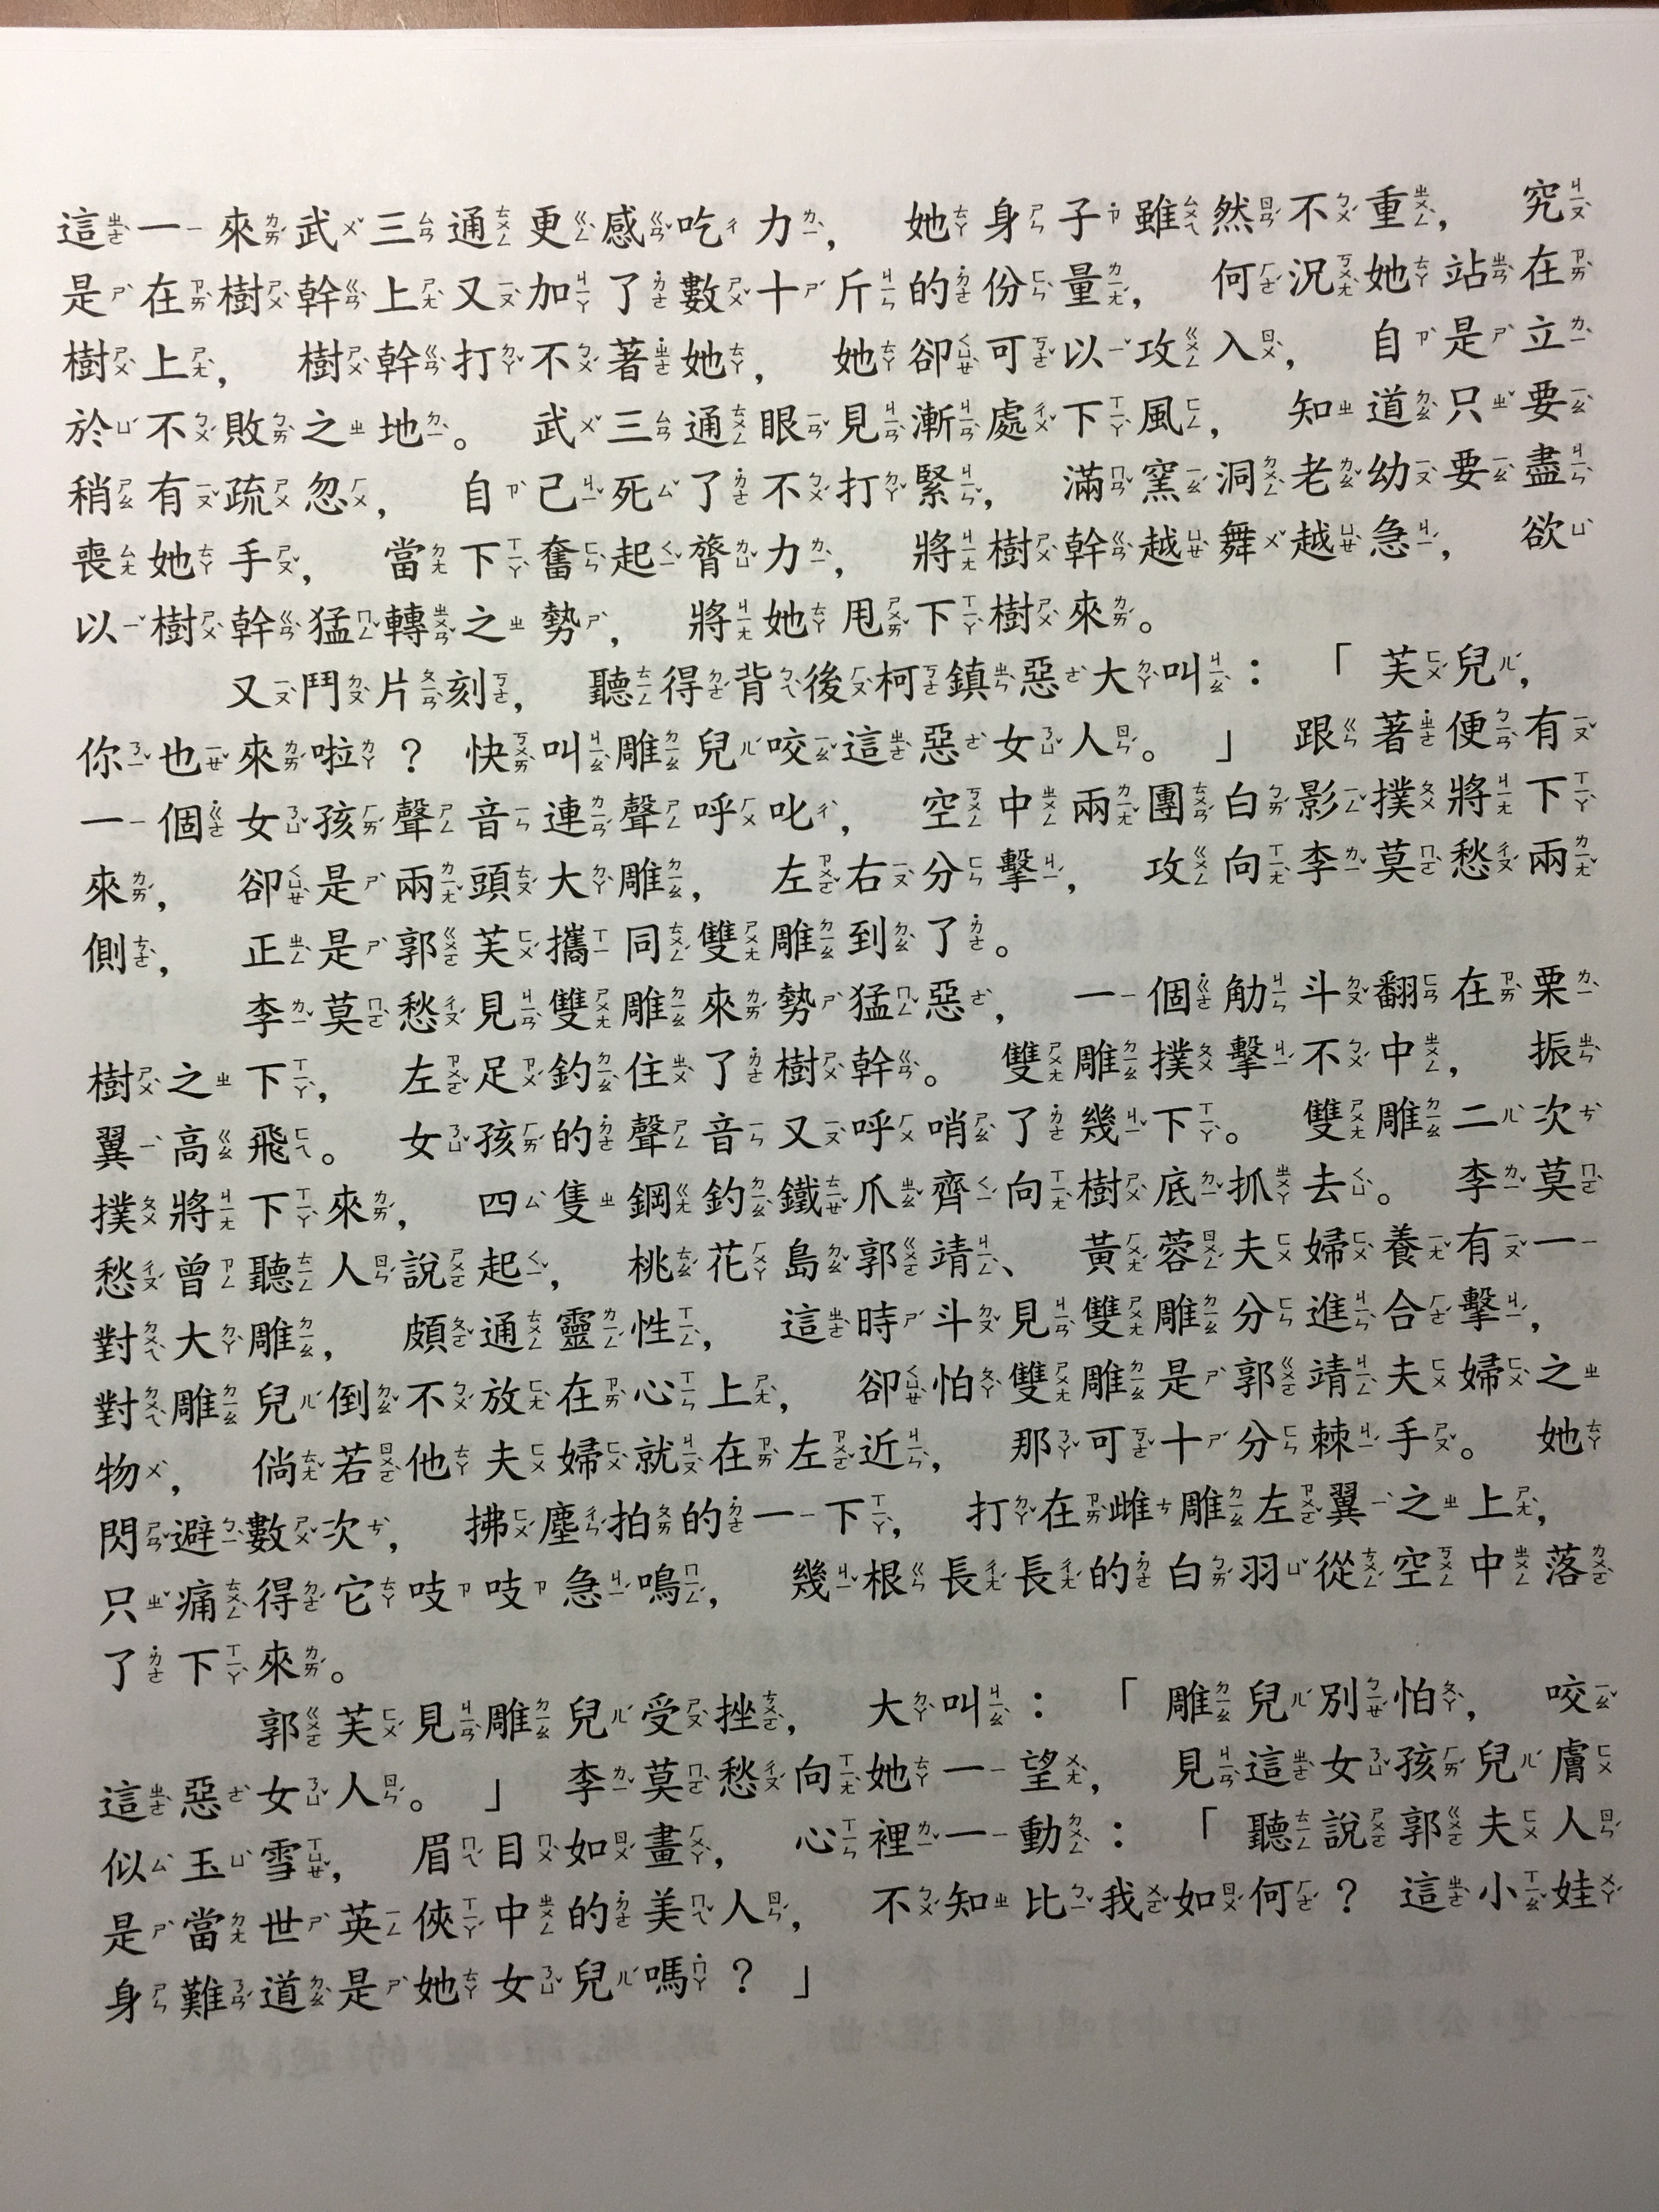 這一來武三通更感吃力，她身子雖然不重，究
是在樹幹上又加了數十斤的份量，何況她站在
樹上，樹幹打不著她，她卻可以攻入，自是立
於不敗之地。武三通眼見漸處下風，知道只要
稍有疏忽，自己死了不打緊，滿窯洞老幼要盡
喪她手，當下奮起膂力，將樹幹越舞越急，欲
以樹幹猛轉之勢，將她甩下樹來。
又鬥片刻，聽得背後柯鎮惡大叫：「芙兒，
你也來啦？快叫雕兒咬這惡女人。」跟著便有
一個女孩聲音連聲呼叱，空中兩團白影撲將下
來，卻是兩頭大雕，左右分擊，攻向李莫愁兩
側，正是郭芙攜同雙雕到了。
李莫愁見雙雕來勢猛惡，一個觔斗翻在栗
樹之下，左足釣住了樹幹。雙雕撲擊不中，振
翼高飛。女孩的聲音又呼哨了幾下。雙雕二次
撲將下來，四隻鋼釣鐵爪齊向樹底抓去。李莫
愁曾聽人說起，桃花島郭靖、黃蓉夫婦養有一
對大雕，頗通靈性，這時斗見雙雕分進合擊，
對雕兒倒不放在心上，卻怕雙雕是郭靖夫婦之
物，倘若他夫婦就在左近，那可十分棘手。她
閃避數次，拂塵拍的一下，打在雌雕左翼之上，
只痛得它吱吱急鳴，幾根長長的白羽從空中落
了下來。
郭芙見雕兒受挫，大叫：「雕兒別怕，咬
這惡女人。」李莫愁向她一望，見這女孩兒膚
似玉雪，眉目如畫，心裡一動：「聽說郭夫人
是當世英俠中的美人，不知比我如何？這小娃
身難道是她女兒嗎？」